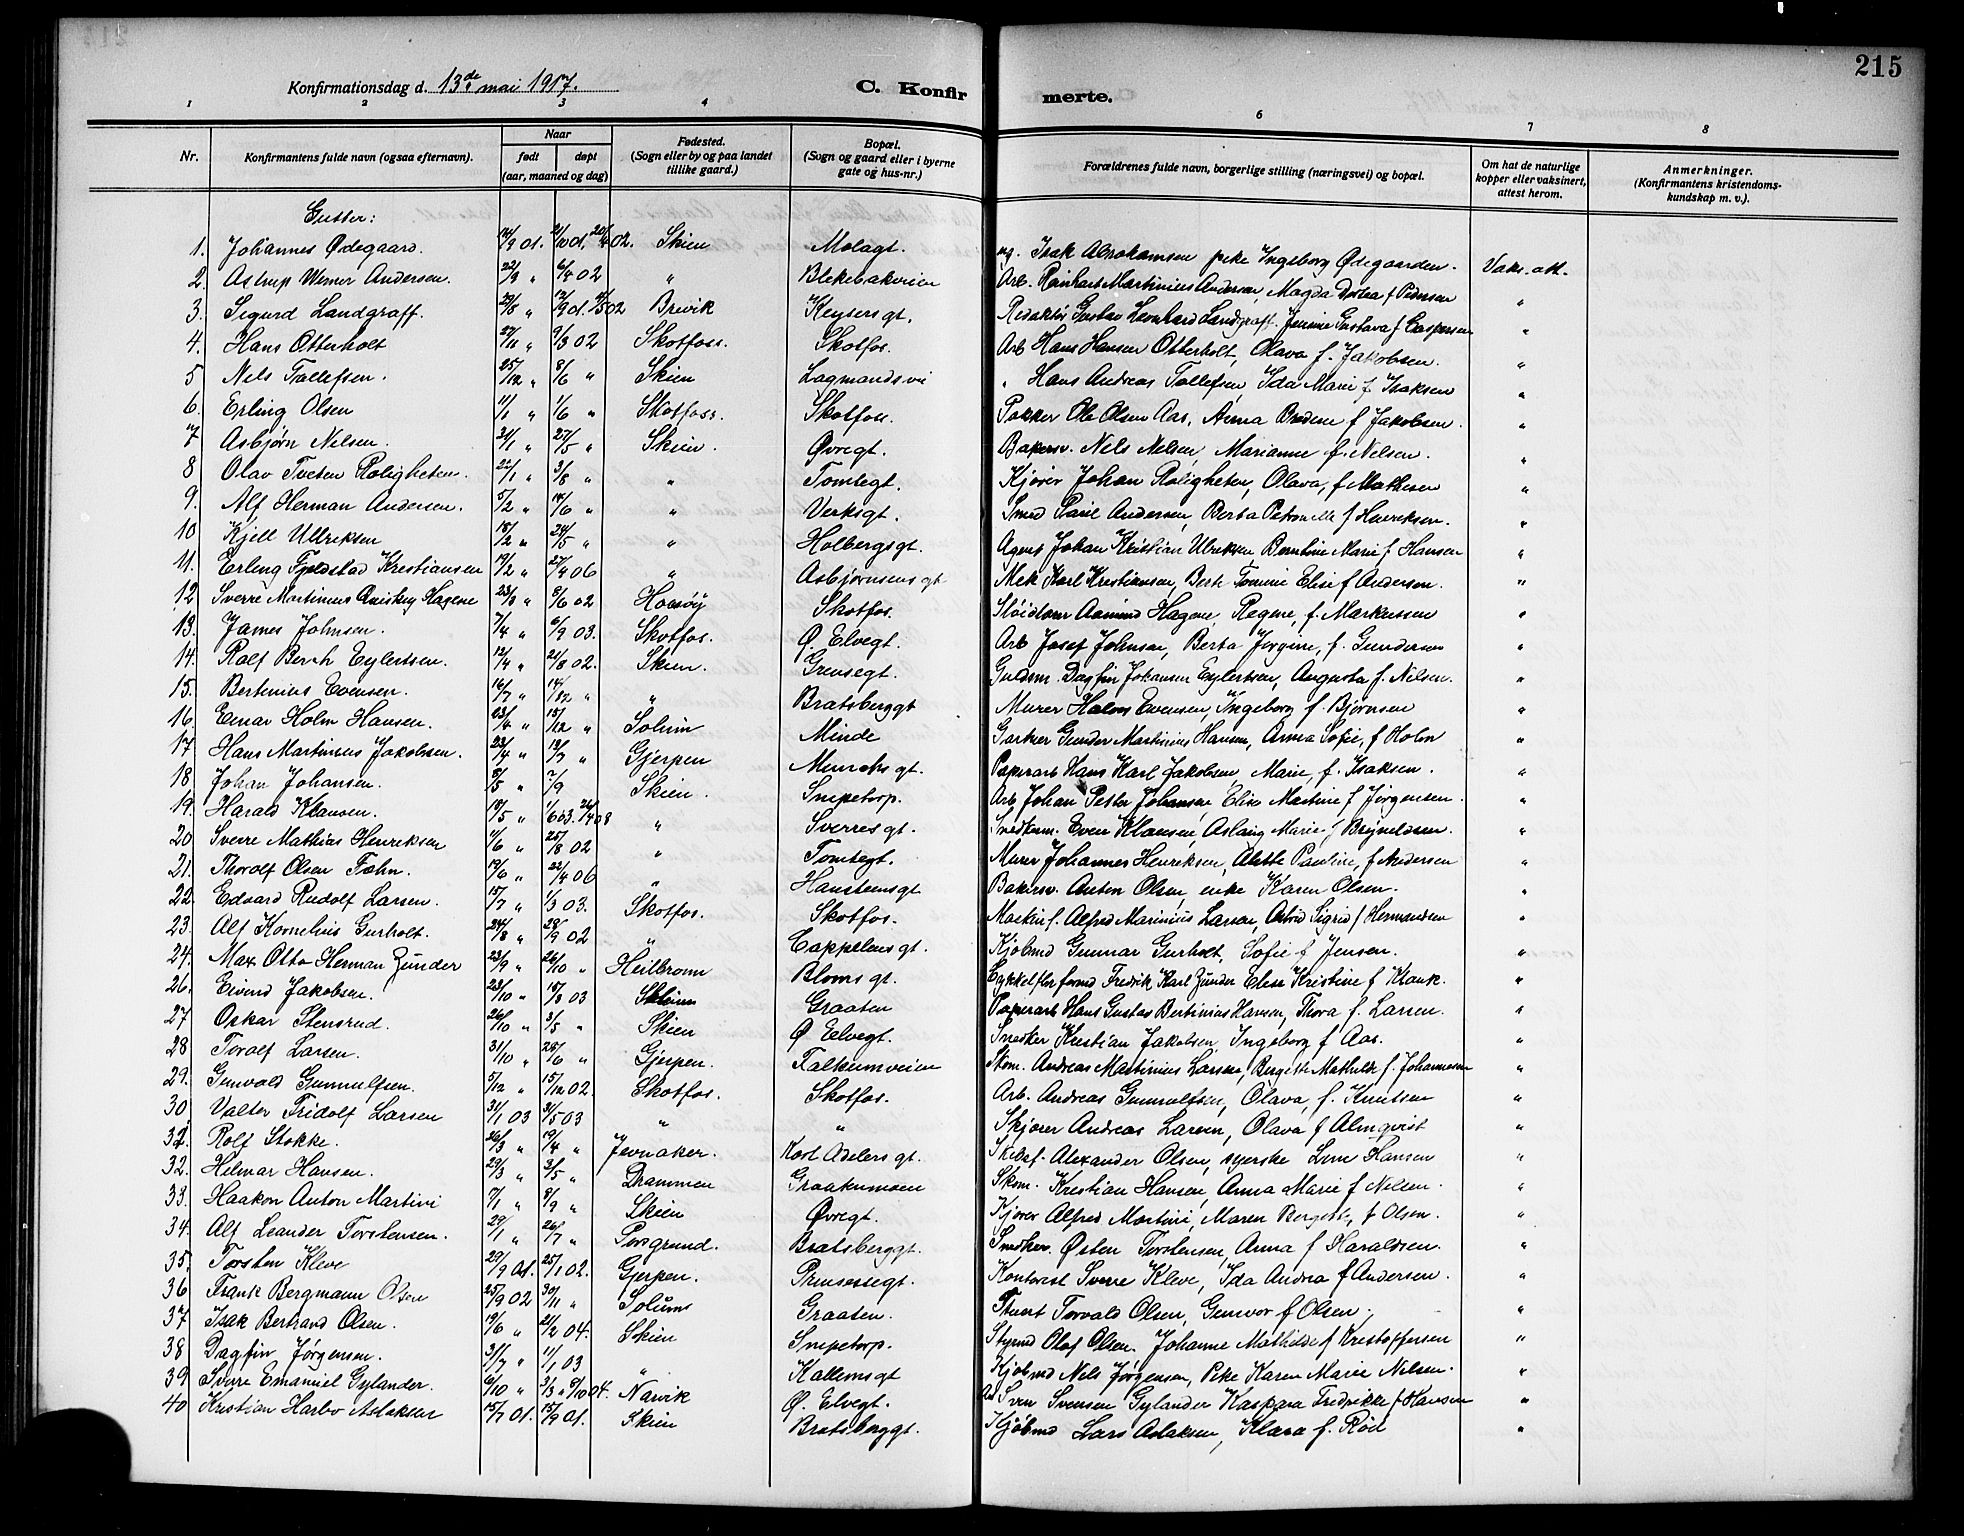 215
Konfirmationsdag d. 13de mai 1917.
C. Konfirmerte.
1 2 3 4 5 6 7 8
Nr. Konfirmantens fulde navn (ogsaa efternavn). Naar født døpt (aar, maaned og dag) Fødested. (Sogn eller by og paa landet tillike gaard.) Bopæl. (Sogn og gaard eller i byerne gate og hus-nr.) Forældrenes fulde navn, borgerlige stilling (næringsvei) og bopæl. Om hat de naturlige kopper eller vaksinert, attest herom. Anmerkninger. (Konfirmantens kristendomskundskap m. v.).
Gutter:
1. Johannes Ødegaard. 01. Skien Molagt. Isak Abrahamsen pike Ingeborg Ødegaarden. Vaks. att.
2. Astrup Werner Andersen. 22/9 " 6/4 02 " Blekebakveien Arb. Reinhart Martinius Andersen, Magda Dortea f Pedersen "
3. Sigurd Landgraff. Brevik Keysersgt. Redaktør Gustav Leonhard Landgraff, Jennie Gustava f Caspersen "
4. Hans Otterholt 27/11 " 9/3 02 Skotfoss. Skotfos. Arb Hans Hansen Otterholt, Olava f. Jakobsen. "
5 Nels Tollefsen. 25/12 " 8/6 " Skien Lagmandsvei " Hans Andreas Tollefsen, Ida Marie f Isaksen "
6. Erling Olsen 11/1 " 1/6 " Skotfoss. Skotfoss. Pakker Ole Olsen Aas, Anna f Jakobsen. "
7 Asbjørn Nilsen. 21/1 " 27/5 " Skien. Øvregt. Bakersv. Nels Nelsen, Marianne f. Nelsen. "
8 Olav Tveten Roligheten. 22/1 " 3/8 " " Tomtegt. Kjører Johan Roligheten, Olava, f Mathesen "
9. Alf Herman Andersen. 5/2 " 14/6 " " Verksgt. Smed Paul Andersen, Berta Petronelle f Henriksen. "
10 Kjell Ullriksen 18/2 " 24/5 " " Holbergsgt. Agent Johan Kristian Ulriksen Berntine Marie f Hansen "
11. Erling Fjeldstad Kristiansen 19/2 " 27/4 06 " Asbjørnsens gt Mek Karl Kristiansen, Berte Tomine Elise f Andersen. "
12 Sverre Martinius Hagene 23/3 " 8/6 02 Skotfos. Aamund Hagene, Regine, f. Markussen "
13. James Johnsen. 7/4 " 6/9 03. Skotfos. Ø. Elvegt. Arb Josef Johnsen, Berta Jørgine, f. Gundersen "
14. Rolf Berch Eylertsen. 12/4 " 21/8 02. Skien. Grensegt. Guldsm. Dagfin Johansen Eylertsen, Augusta f. Nilsen. "
15. Bertinius Evensen. 16/7 " 14/12 " " Bratsberggt Murer Halvor Evensen, Ingeborg f. Bjørnsen "
16. Einar Holm Hansen. 23/4 " 15/12 " Solum Minde Gartner Gunder Martinius Hansen, Anna Sofie, f Holm "
17 Hans Martinius Jakobsen. 23/4 " 13/7 " Gjerpen Munchs gt. Paperarb Hans Karl Jakobsen, Marie, f. Isaksen. "
18 Johan Johansen. 8/5 " 7/9 Skien. Snipetorp. Arb Johan Petter Johansen, Elise Martine f Jørgensen. "
19. Harald Klausen. 18/5 " " Sverresgt. Snedkerm. Even Klausen, Aslaug Marie f Brynildsen. "
20 Sverre Mathias Henriksen 11/6 " 25/8 02 " Tomtegt. Murer Johannes Henriksen, Alette Pauline, f Andersen "
21. Thorolf Olsen Fæhn. 19/6 " 22/4 06 " Hansteensgt Bakersv. Anton Olsen, enke Karen Olsen. "
22. Edvard Rudolf Larsen. 15/7 " 1/3 03. Skotfos. Skotfos. Maskinf. Alfred Marinius Larsen, Astrid Sigrid f Hermansen "
23. Alf Kornelius Gurholt. 24/8 " 28/9 02 " Cappelens gt. Kjøbmd Gunnar Gurholt, Sofie f Jensen. "
24. Max Otto Herman Zünder 23/9 " 26/10 " Heilbronn Bloms gt. Fredrik Karl Zünder Elise Kristine f Klank. "
26. Eivind Jakobsen. 23/10 " 15/3 03 Solum Graaten Paperarb Hans Gustav Bertinius Hansen, Thora f. Larsen. "
27 Oskar Stensrud. 26/10 " 3/5 " Skien Ø Elvegt. Snedker Kristian Jakobsen, Ingeborg f Aas. "
28 Toralf Larsen. 31/10 " 28/6 " Gjerpen. Falkumveien Skom. Andreas Martinius Larsen, Bergitte Mathilde f. Johannesen "
29. Gunvald Gunnulfsen. 5/12 " 15/12 02. Skotfos. Skotfos. Arb. Andreas Gunnulfsen, Olava, f. Knutsen "
30 Valter Fridolf Larsen 31/1 03 31/5 03 " " Skjører Andreas Larsen, Olava f Almqvist "
32. Rolf Stokke. 26/3 " 19/4 " Jevnaker. Kort Adelers gt. Alexander Olsen, syerske Line Hansen "
32. Helmar Hansen. 29/3 " 3/5 " Drammen Graatenmoen Skom. Kristian Hansen, Anna Marie f Nelsen. "
33. Haakon Anton Martini 7/1 " 8/9 " Skien Øvregt. Kjører Alfred Martini, Maren Bergitte, f Olsen. "
34. Alf Leander Torstensen. 29/1 " 26/7 " Porsgrund. Bratsberggt. Snedker. Østen Torstensen, Anna f Haraldsen. "
35. Torsten Kleve 29/9 01. 25/1 02. Gjerpen. Prinsessegt. Kontorist Sverre Kleve, Ida Andrea f Andersen. "
36 Frank Bergmann Olsen 25/9 02 30/11 " Solum Graaten. Stuert Torvald Olsen, Gunvor f Olsen. "
37. Isak Bertrand Olsen. 19/6 " 21/2 04. Skien Snipetorp. Styrmd Olaf Olsen. Johanne Mathilde f Kristoffersen "
38 Dagfin Jørgensen. 31/7 " 11/1 03 " Kallemsgt Kjøbmd Nels Jørgensen, Pike Karen Marie Nilsen. "
39 Sverre Emanuel Gylander. 6/10 " 3/3 " 8/10 04. Narvik Ø. Elvegt. Arb Sven Svensen Gylander Kaspara Fredrikke f Hansen "
40 Kristian Harbo Aslaksen 15/7 01. 15/9 01. Skien Bratsberggt. Kjøbmd Lars Aslaksen, Klara f. Rød "